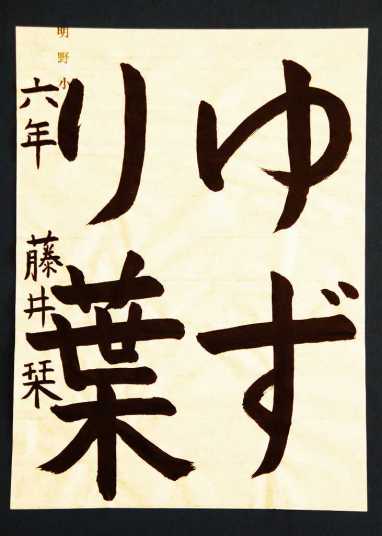 ゆず
り葉
明野小
六年 藤井栞